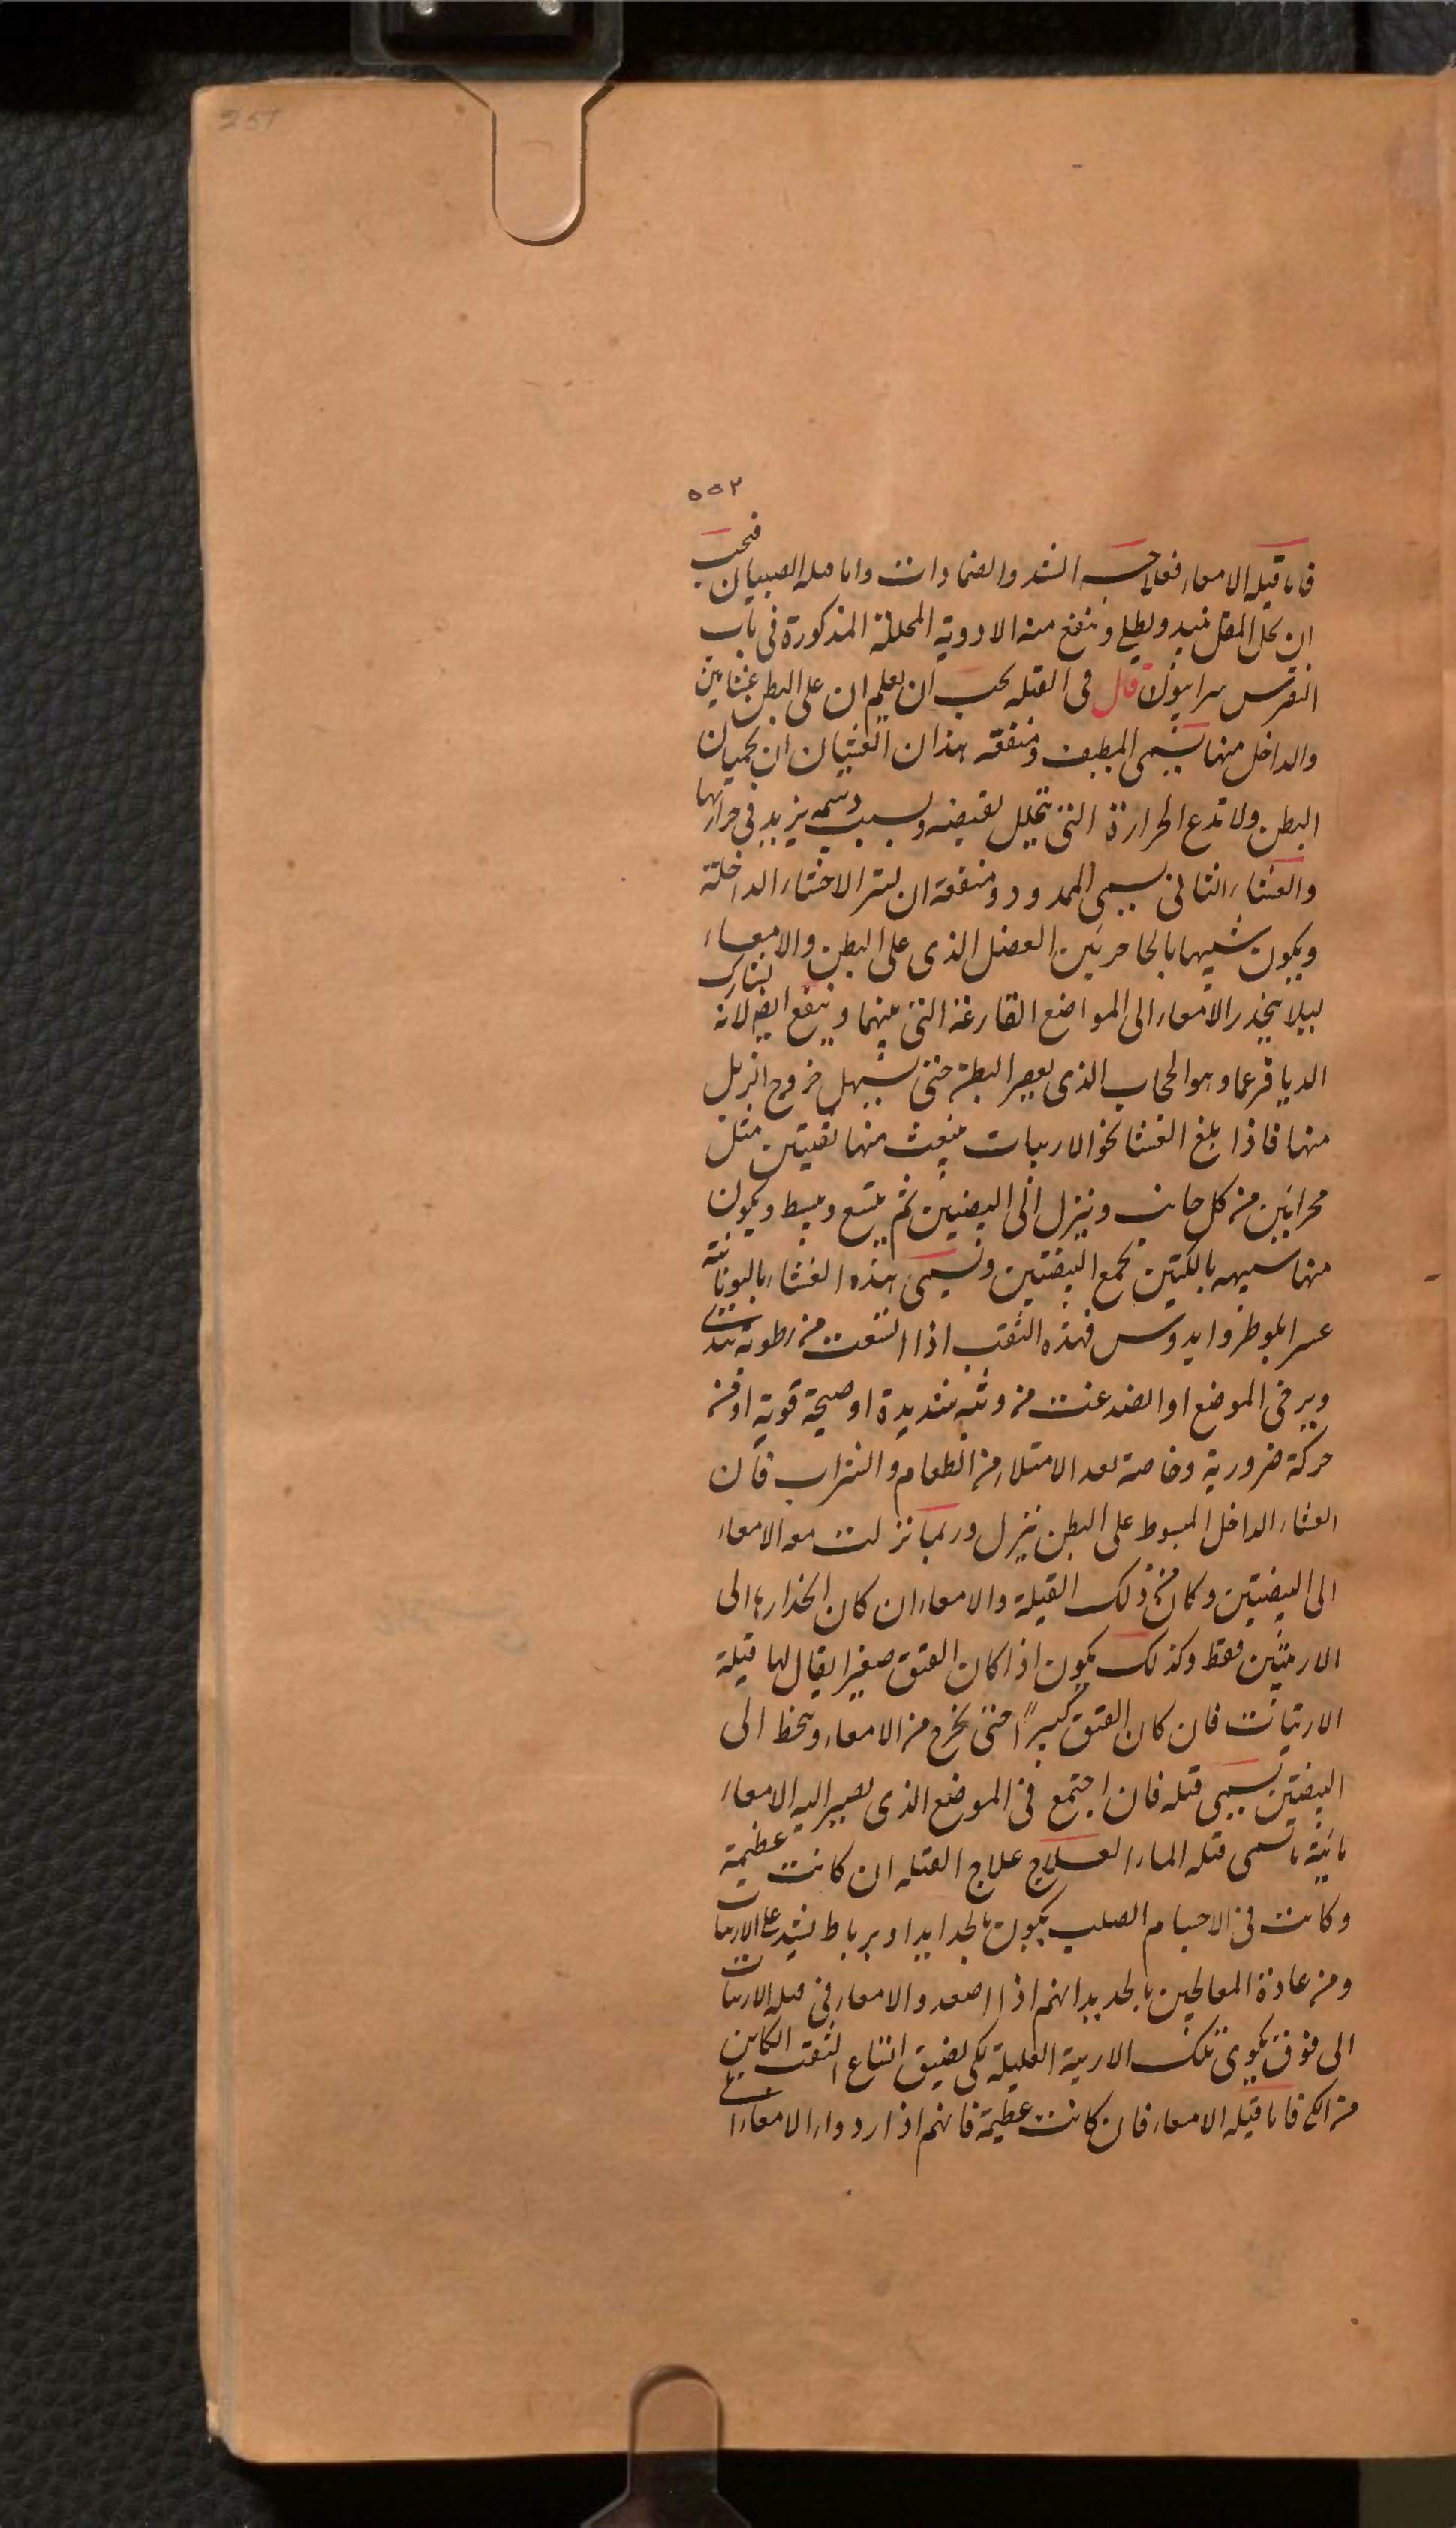 251
٥٥٢
فاما قيله الامعاء فعلاجه الشد والضمادات واما قيله الصبيان فيجب
ان يحل المقل بنبيد ويطلى وينفع منه الادوية المحللة المذكورة في باب
النقرس سرابيون قال فى القيله يجب ان يعلم ان على البطن غشايين
والداخل منها يسمى المطيف ومنفعه هذان الغشيان ان يحميان
البطن ولا تدع الحرارة التى تتحلل لقبضه وبسبب دسمه يزيد في حرارتها
والغشاء الثانى يسمى الممدود ومنفعة ان يستر الاحشاء الداخلة
ويكون شبيها بالحاجر بين العضل الذى على البطن والامعاء
ليلا ينحدر الامعاء الى المواضع الفارغة التى بينهما وينفع ايضا لانه يشارك
الديافرغما وهو الحجاب الذى يعصر البطن حتى يسهل خروج الزبل
منها فاذا بلغ الغشا نحو الاربيات ينبعث منها ثقبتين مثل
مجرايين من كل جانب وينزل الى البيضتين ثم يتسع ويبسط ويكون
منها شبيهه بالكيتين تجمع البيضتين ويسمى هذه الغشاء باليونانية
فهذه الثقب اذا اتسعت من رطوبة تندى
ويرخى الموضع او انصدعت من وثبه شديدة او صيحة قوية او من
حركة ضرورية وخاصة بعد الامتلاء من الطعام والشراب فان
الغشاء الداخل المبسوط على البطن ينزل وربما نزلت معه الامعاء
الى البيضتين وكان من ذلك القيلة والامعاء ان كان انحدارها الى
الاربيتين فقط وكذلك يكون اذا كان الفتق صغيرا يقال لها قيلة
الاربيات فان كان الفتق كبيرًا حتى يخرج من الامعاء وينحط الى
البيضتين يسمى قيله فان اجتمع في الموضع الذى يصير اليه الامعاء
مائية ما تسمى قيله الماء العلاج علاج القيله ان كانت عظيمة
وكانت فى الاجسام الصلب يكون بالحدايد او برباط يشد على الاربيات
ومن عادة المعالجين بالحديد انهم اذا اصعدوا الامعاء فى قيله الاربيات
الى فوق يكوى تلك الاربية العليلة لكى يضيق اتساع الثقب الكاين
من الكى فاما قيله الامعاء فان كانت عظيمة فانهم اذا ردوا الامعاء الى